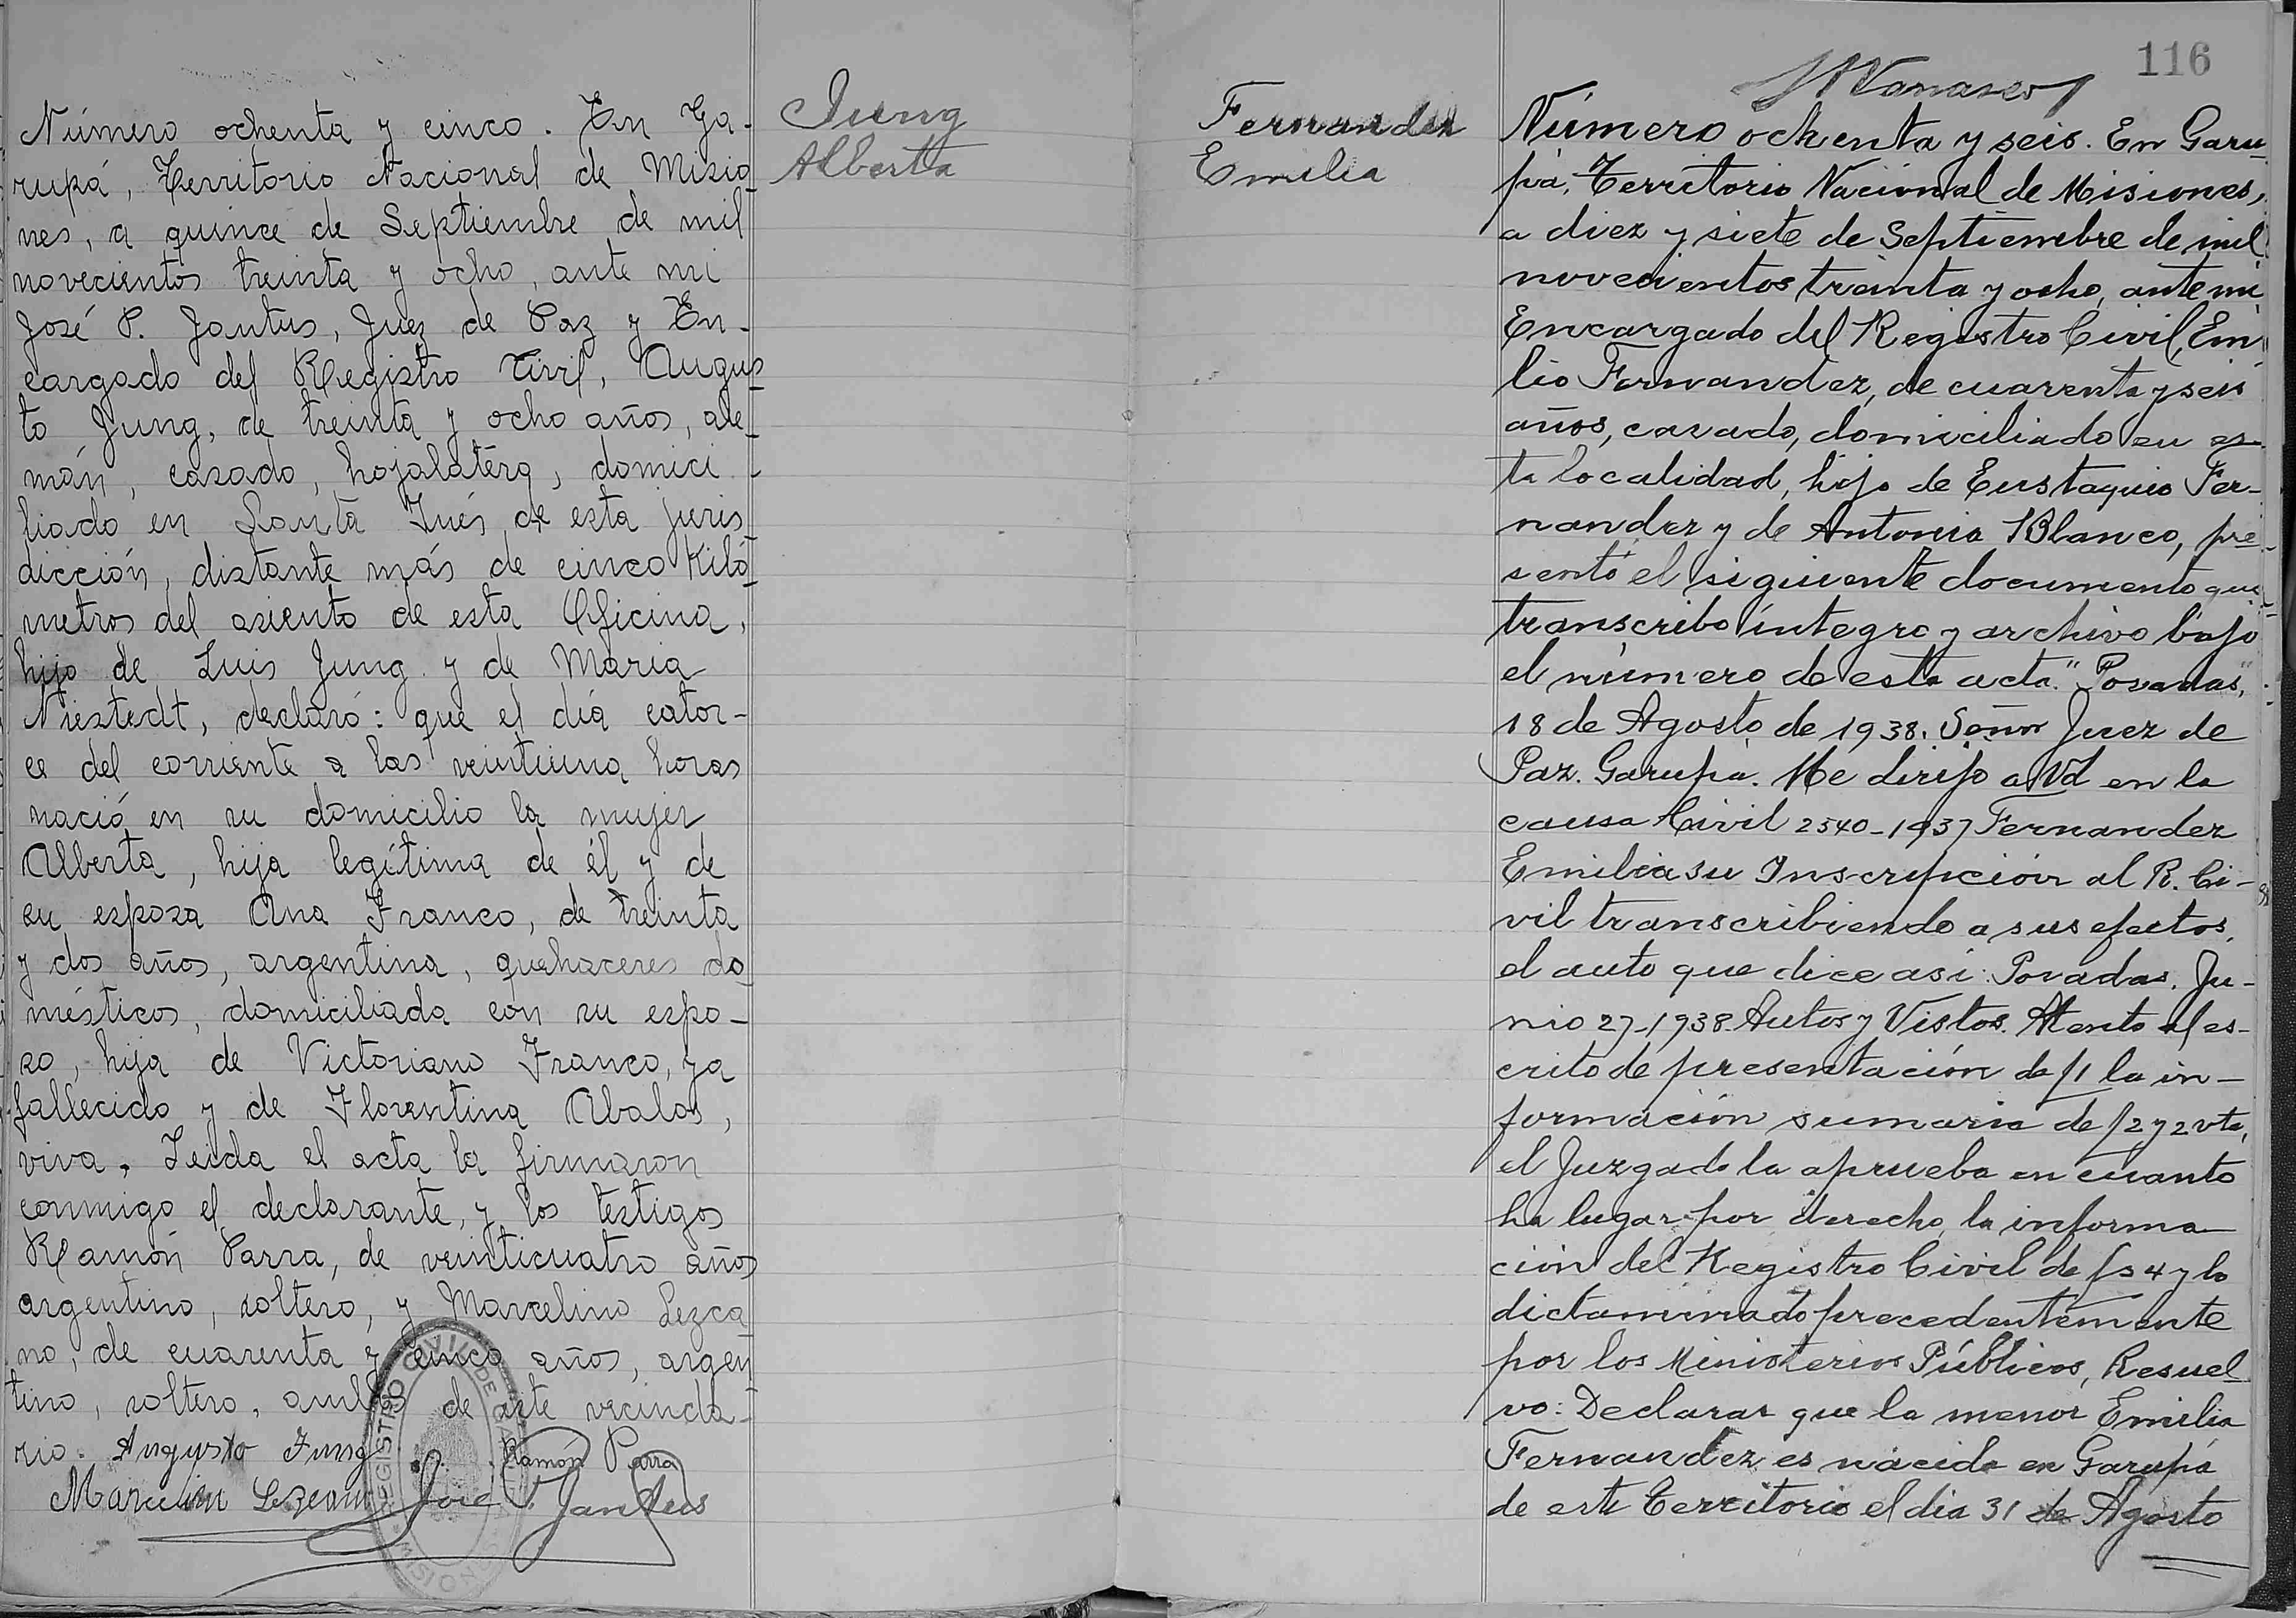 Número ochenta y cinco. En Ga-
rupá, Territorio Nacional de Misio-
nes, a quince de Septiembre de mil
novecientos treinta y ocho, ante mi
José P. Jantus, Juez de Paz y En-
cargado del Registro Civil, Augus-
to Jung, de treinta y ocho años, ale-
mán, casado, hojalatero, domici-
liado en Santa Inés de esta juris-
dicción, distante más de cinco Kiló-
metros del asiento de esta Oficina,
hijo de Luis Jung y de Maria
Niestedt, declaró: que el día cator-
ce del corriente a las veintiuna horas
nació en su domicilio la mujer
Alberta, hija legítima de él y de
su esposa Ana Franco, de treinta
y dos años, argentina, quehaceres do-
mésticos, domiciliada con su espo-
so, hija de Victoriano Franco, ya
fallecido y de Florentina Abalos,
viva. Leida el acta la firmaron
conmigo el declarante, y los testigos
Ramón Parra, de veinticuatro años
argentino, soltero, y Marcelino Lezca-
no, de cuarenta y cinco años, argen-
tino, soltero, ambos de este vecinda-
rio. Augusto Jung Ramón Parra
Marcelino Lezcano José P. Jantus
REGISTRO CIVIL DE
Jung
Alberta
Fernandez
Emilia
116
Número ochenta y seis. En Garu-
pá, Territorio Nacional de Misiones,
a diez y siete de Septiembre de mil
novecientos treinta y ocho, ante mi
Encargado del Registro Civil, Emi-
lio Fernandez, de cuarenta y seis
años, casado, domiciliado en es-
ta localidad, hijo de Eustaquio Fer-
nandez y de Antonia Blanco, pre-
sentó el siguiente documento que
transcribo íntegro y archivo bajo
el número de esta acta. "Posadas,
18 de Agosto de 1938. Señor Juez de
Paz. Garupá. Me dirijo a Vd en la
causa Civil 2540-1937 Fernandez
Emilia su Inscripción al R. Ci-
vil transcribiendo a sus efectos,
el auto que dice así: Posadas. Ju-
nio 27-1938. Autos y Vistos. Atento al es-
crito de presentación de f1 la in-
formación sumaria de f2 y 2 vta,
el Juzgado la aprueba en cuanto
ha lugar por derecho, la informa
ción del Registro Civil de fs 4 y lo
dictaminado precedentemente
por los Ministerios Públicos, Resuel-
vo: Declarar que la menor Emilia
Fernandez es nacida en Garupá
de este Territorio el dia 31 de Agosto